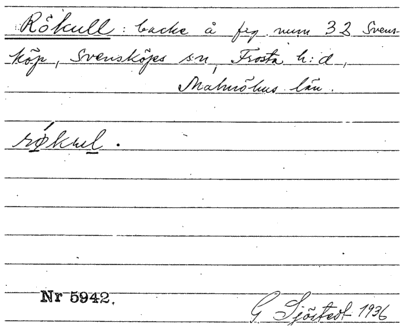 Rökull: backe å fig num 32 Svens-
köp, Svensköps sn, Frosta h:d,
Malmöhus län.
røkul.
Nr 5942.
G Sjöstedt 1936